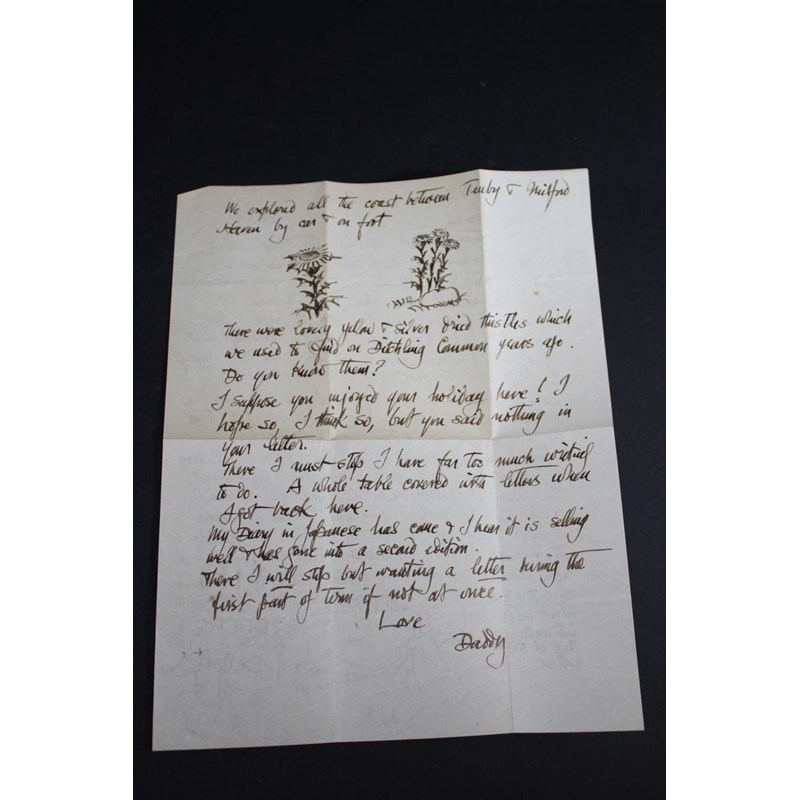 We explored all the coast between Tenby & Milford
Haven by car & on foot.
There were lovely yellow & silver dried thistles which
we used to find on Ditchling Common years ago.
Do you know them?
I suppose you enjoyed your holiday here! I
hope so, I think so, but you said nothing in
your letter.
There I must stop I have far too much writing
to do. A whole table covered with letters when
I got back here.
My Diary in Japanese has come & I hear it is selling
well & has gone into a second edition.
There I will stop but wanting a letter during the
first part of term if not at once.
Love
Daddy